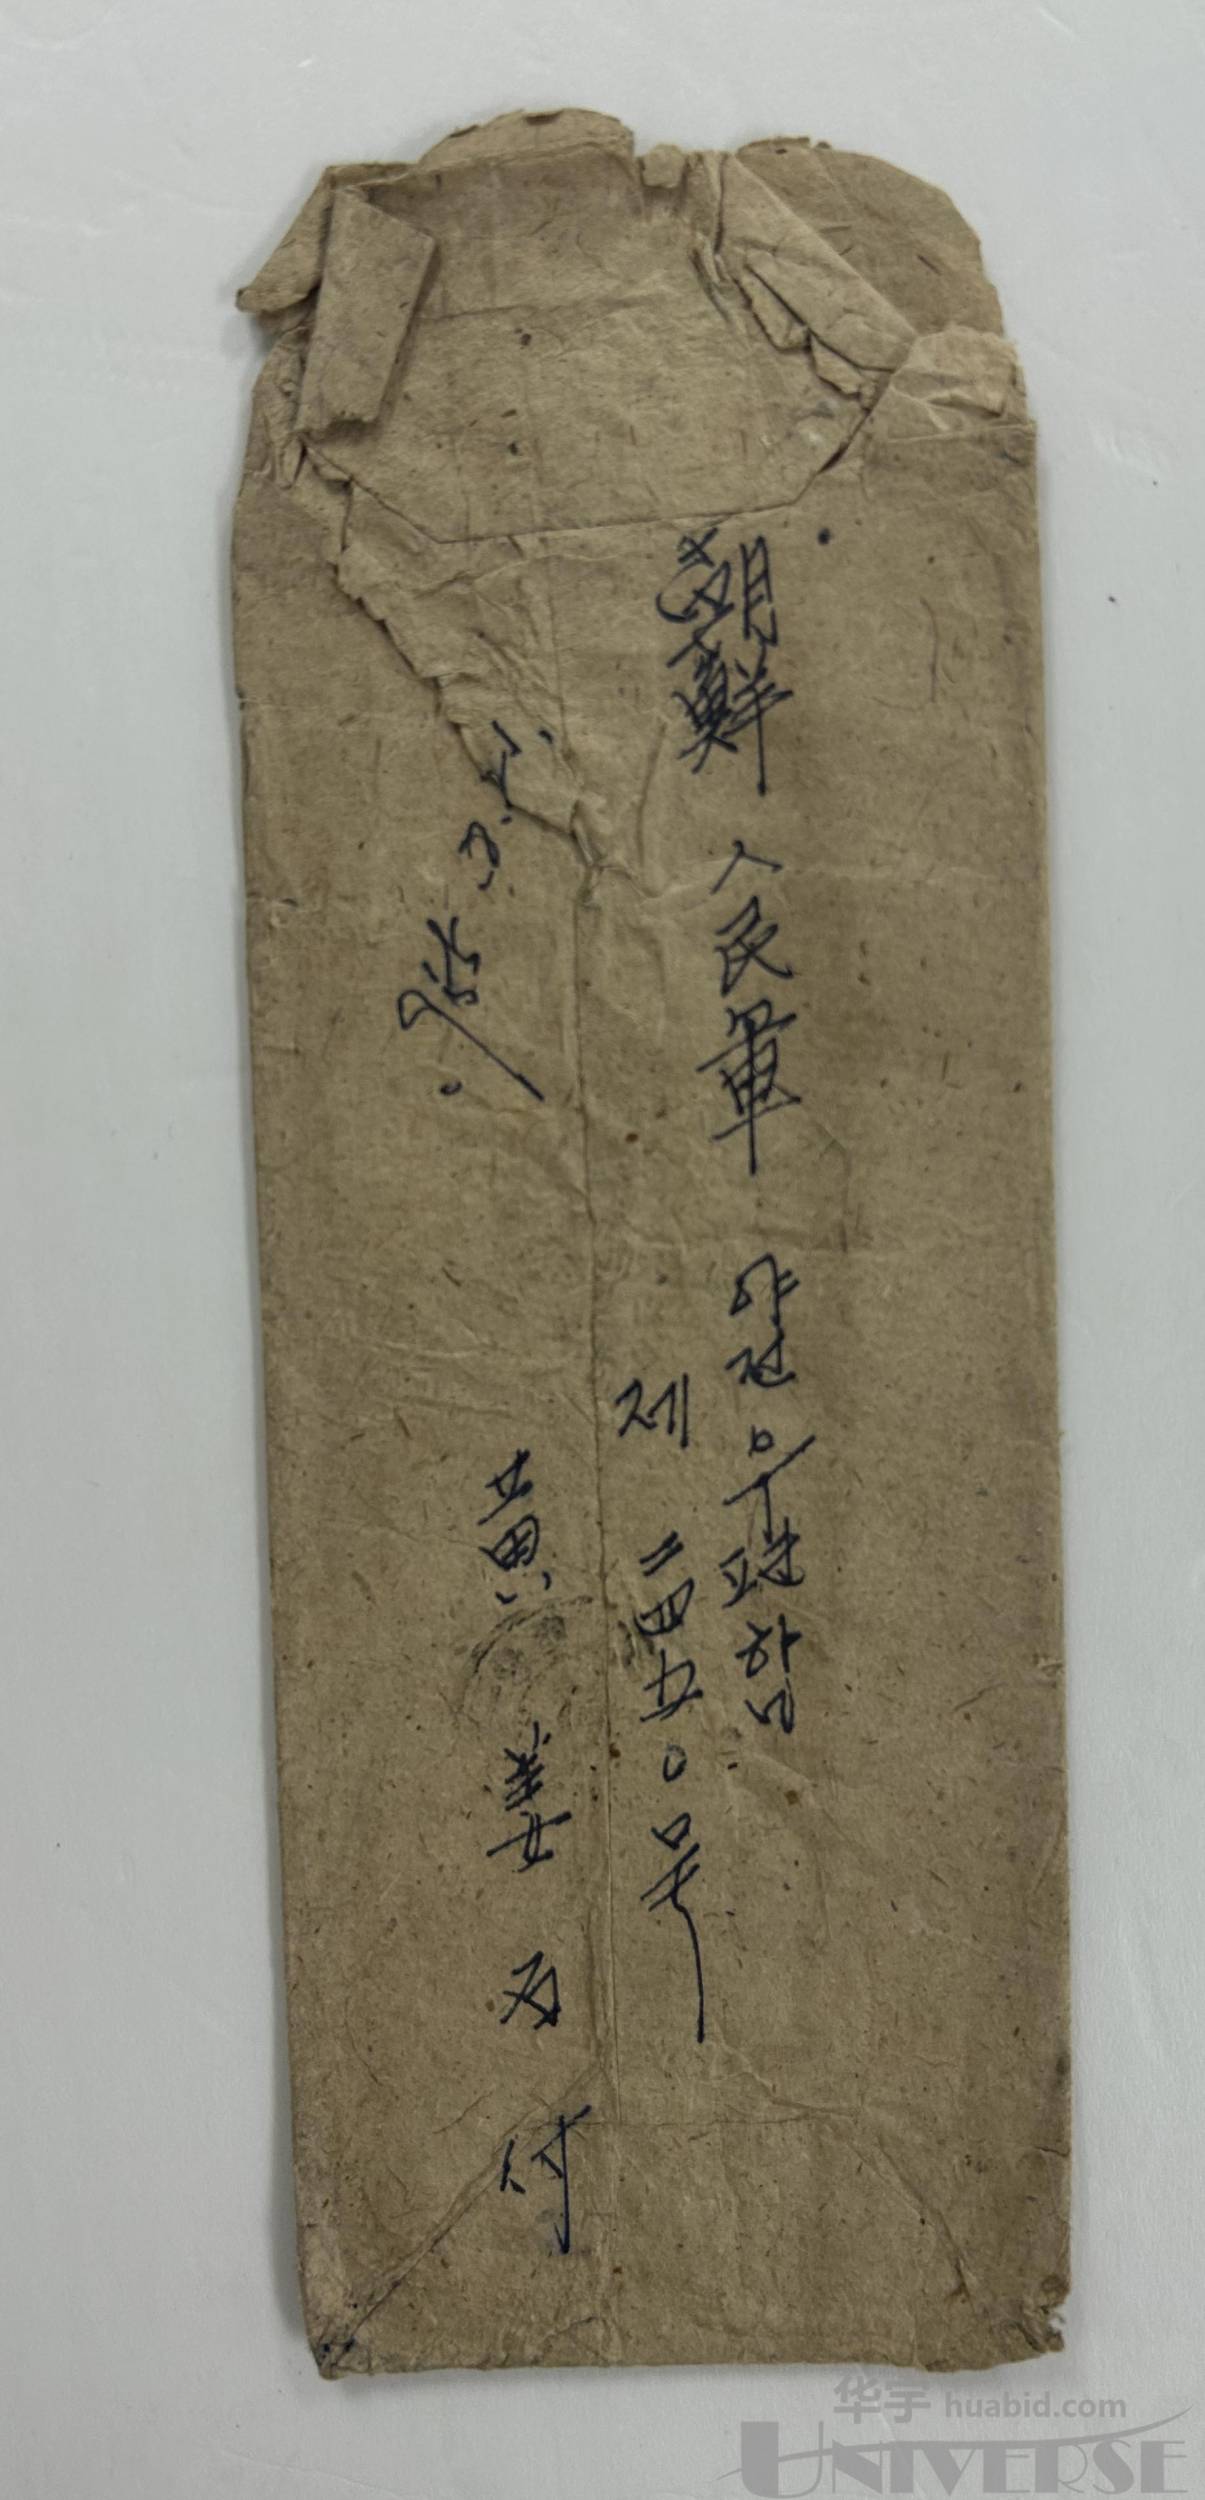 朝鮮 人民軍 야전우편함
제 二四五〇号
黄 姜 付
华宇 huabid.com
UNIVERSE